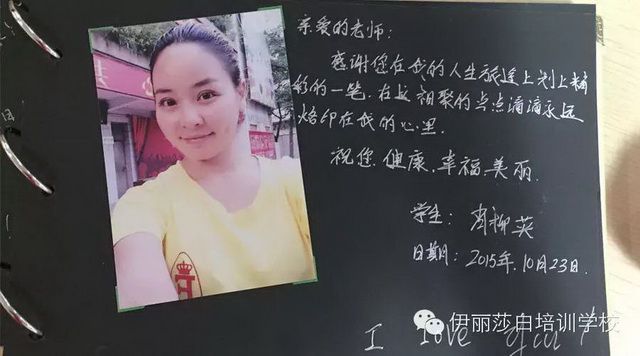 亲爱的老师:
感谢您在我的人生旅途上划上精
彩的一笔,在此相聚的点点滴滴永远
烙印在我的心里.
祝您 健康.幸福.美丽.
学生: 肖柳英
日期: 2015年.10月23日.
伊丽莎白培训学校
I love you!